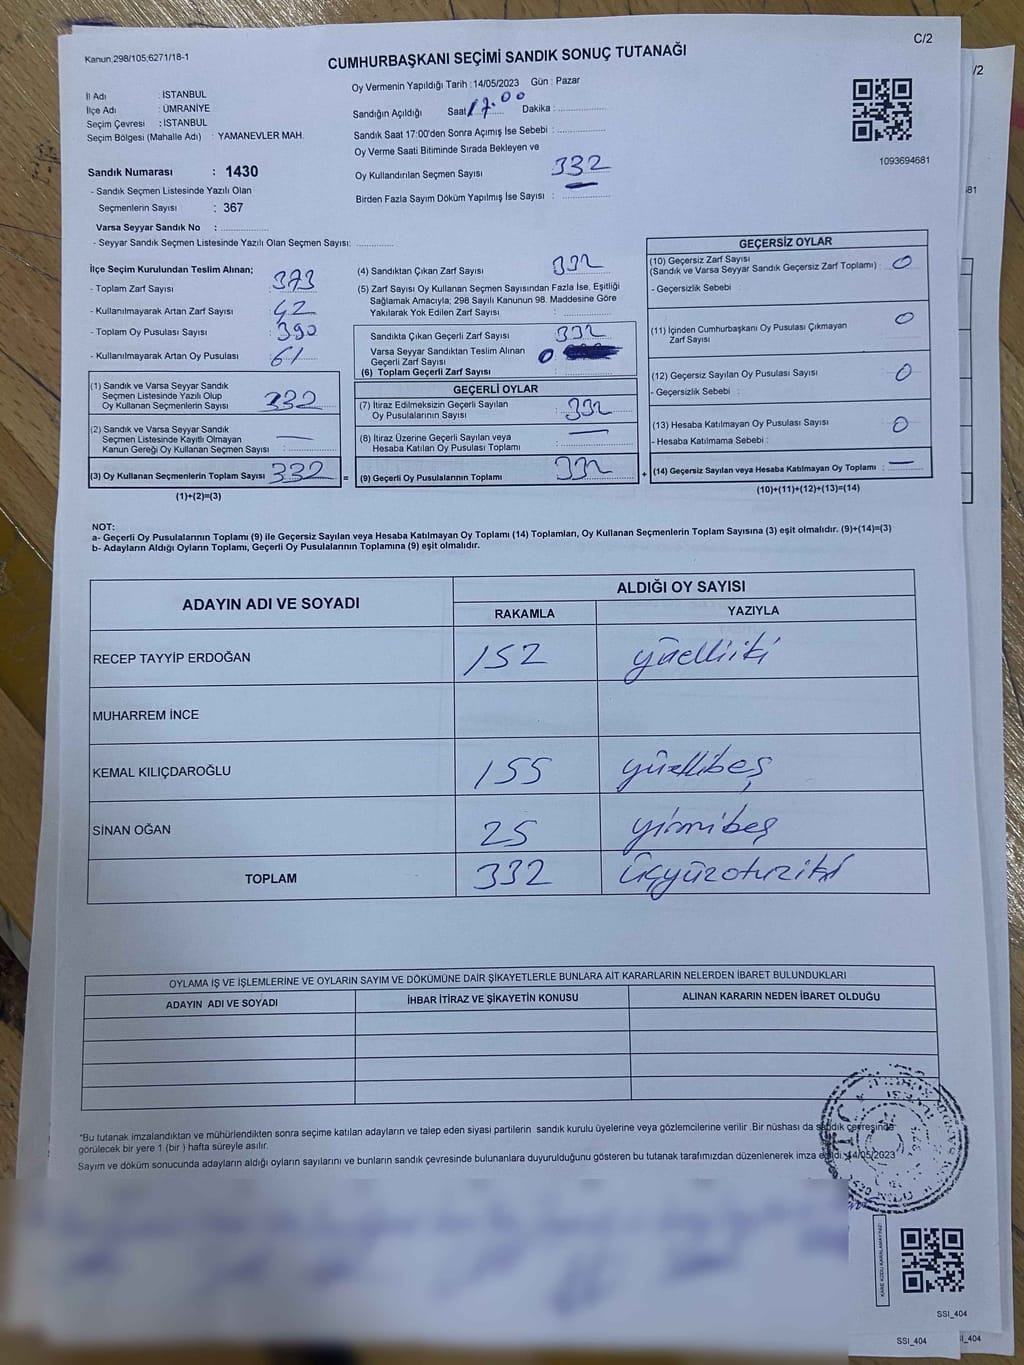 C/2
Kanun;298/105;6271/18-1
CUMHURBAŞKANI SEÇİMİ SANDIK SONUÇ TUTANAĞI
İl Adı : İSTANBUL
İlçe Adı : ÜMRANİYE
Seçim Çevresi : İSTANBUL
Seçim Bölgesi (Mahalle Adı) : YAMANEVLER MAH.
Oy Vermenin Yapıldığı Tarih : 14/05/2023 Gün : Pazar
Sandığın Açıldığı Saat 17.00 Dakika :
Sandık Saat 17:00'den Sonra Açımış İse Sebebi :
Oy Verme Saati Bitiminde Sırada Bekleyen ve
Oy Kullandırılan Seçmen Sayısı 332
Birden Fazla Sayım Döküm Yapılmış İse Sayısı :
1093694681
Sandık Numarası : 1430
- Sandık Seçmen Listesinde Yazılı Olan
Seçmenlerin Sayısı : 367
Varsa Seyyar Sandık No :
- Seyyar Sandık Seçmen Listesinde Yazılı Olan Seçmen Sayısı:
İlçe Seçim Kurulundan Teslim Alınan;
- Toplam Zarf Sayısı 373
- Kullanılmayarak Artan Zarf Sayısı 42
- Toplam Oy Pusulası Sayısı 390
- Kullanılmayarak Artan Oy Pusulası 61
(1) Sandık ve Varsa Seyyar Sandık
Seçmen Listesinde Yazılı Olup
Oy Kullanan Seçmenlerin Sayısı 332
(2) Sandık ve Varsa Seyyar Sandık
Seçmen Listesinde Kayıtlı Olmayan
Kanun Gereği Oy Kullanan Seçmen Sayısı : —
(3) Oy Kullanan Seçmenlerin Toplam Sayısı 332 =
(1)+(2)=(3)
(4) Sandıktan Çıkan Zarf Sayısı 332
(5) Zarf Sayısı Oy Kullanan Seçmen Sayısından Fazla İse, Eşitliği
Sağlamak Amacıyla; 298 Sayılı Kanunun 98. Maddesine Göre
Yakılarak Yok Edilen Zarf Sayısı :
Sandıkta Çıkan Geçerli Zarf Sayısı 332
Varsa Seyyar Sandıktan Teslim Alınan
Geçerli Zarf Sayısı 0
(6) Toplam Geçerli Zarf Sayısı :
GEÇERLİ OYLAR
(7) İtiraz Edilmeksizin Geçerli Sayılan
Oy Pusulalarının Sayısı 332
(8) İtiraz Üzerine Geçerli Sayılan veya
Hesaba Katılan Oy Pusulası Toplamı : —
(9) Geçerli Oy Pusulalarının Toplamı 332 +
GEÇERSİZ OYLAR
(10) Geçersiz Zarf Sayısı
(Sandık ve Varsa Seyyar Sandık Geçersiz Zarf Toplamı) : 0
- Geçersizlik Sebebi :
(11) İçinden Cumhurbaşkanı Oy Pusulası Çıkmayan
Zarf Sayısı 0
(12) Geçersiz Sayılan Oy Pusulası Sayısı 0
- Geçersizlik Sebebi :
(13) Hesaba Katılmayan Oy Pusulası Sayısı 0
- Hesaba Katılmama Sebebi :
(14) Geçersiz Sayılan veya Hesaba Katılmayan Oy Toplamı : —
(10)+(11)+(12)+(13)=(14)
NOT:
a- Geçerli Oy Pusulalarının Toplamı (9) ile Geçersiz Sayılan veya Hesaba Katılmayan Oy Toplamı (14) Toplamları, Oy Kullanan Seçmenlerin Toplam Sayısına (3) eşit olmalıdır. (9)+(14)=(3)
b- Adayların Aldığı Oyların Toplamı, Geçerli Oy Pusulalarının Toplamına (9) eşit olmalıdır.
ADAYIN ADI VE SOYADI
ALDIĞI OY SAYISI
RAKAMLA YAZIYLA
RECEP TAYYİP ERDOĞAN 152 yüzelliiki
MUHARREM İNCE
KEMAL KILIÇDAROĞLU 155 yüzellibeş
SİNAN OĞAN 25 yirmibeş
TOPLAM 332 üçyüzotuziki
OYLAMA İŞ VE İŞLEMLERİNE VE OYLARIN SAYIM VE DÖKÜMÜNE DAİR ŞİKAYETLERLE BUNLARA AİT KARARLARIN NELERDEN İBARET BULUNDUKLARI
ADAYIN ADI VE SOYADI İHBAR İTİRAZ VE ŞİKAYETİN KONUSU ALINAN KARARIN NEDEN İBARET OLDUĞU
*Bu tutanak imzalandıktan ve mühürlendikten sonra seçime katılan adayların ve talep eden siyasi partilerin sandık kurulu üyelerine veya gözlemcilerine verilir .Bir nüshası da sandık çevresinde
görülecek bir yere 1 (bir ) hafta süreyle asılır.
Sayım ve döküm sonucunda adayların aldığı oyların sayılarını ve bunların sandık çevresinde bulunanlara duyurulduğunu gösteren bu tutanak tarafımızdan düzenlenerek imza edildi. 14/05/2023
KARE KODU KARALAMAYINIZ!
SSI_404
SSI_404
/2